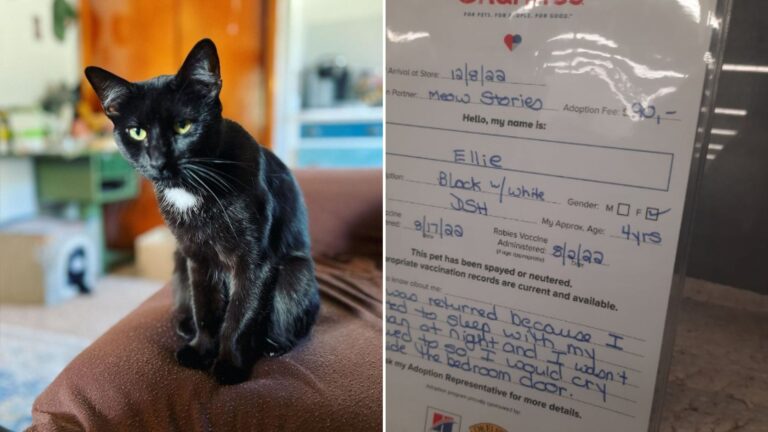 FOR PETS. FOR PEOPLE. FOR GOOD.
Arrival at Store: 12/8/22
Partner: Meow Stories Adoption Fee: $90,-
Hello, my name is:
Ellie
Black w/ white Gender: M F
DSH My Approx. Age: 4yrs
8/17/22 Rabies Vaccine
Administered: 8/2/22
(if age appropriate)
This pet has been spayed or neutered.
vaccination records are current and available.
know about me:
was returned because I
to sleep with my
at night and I wasn't
to so I would cry
the bedroom door.
my Adoption Representative for more details.
Adoption program proudly sponsored by:
Hill's